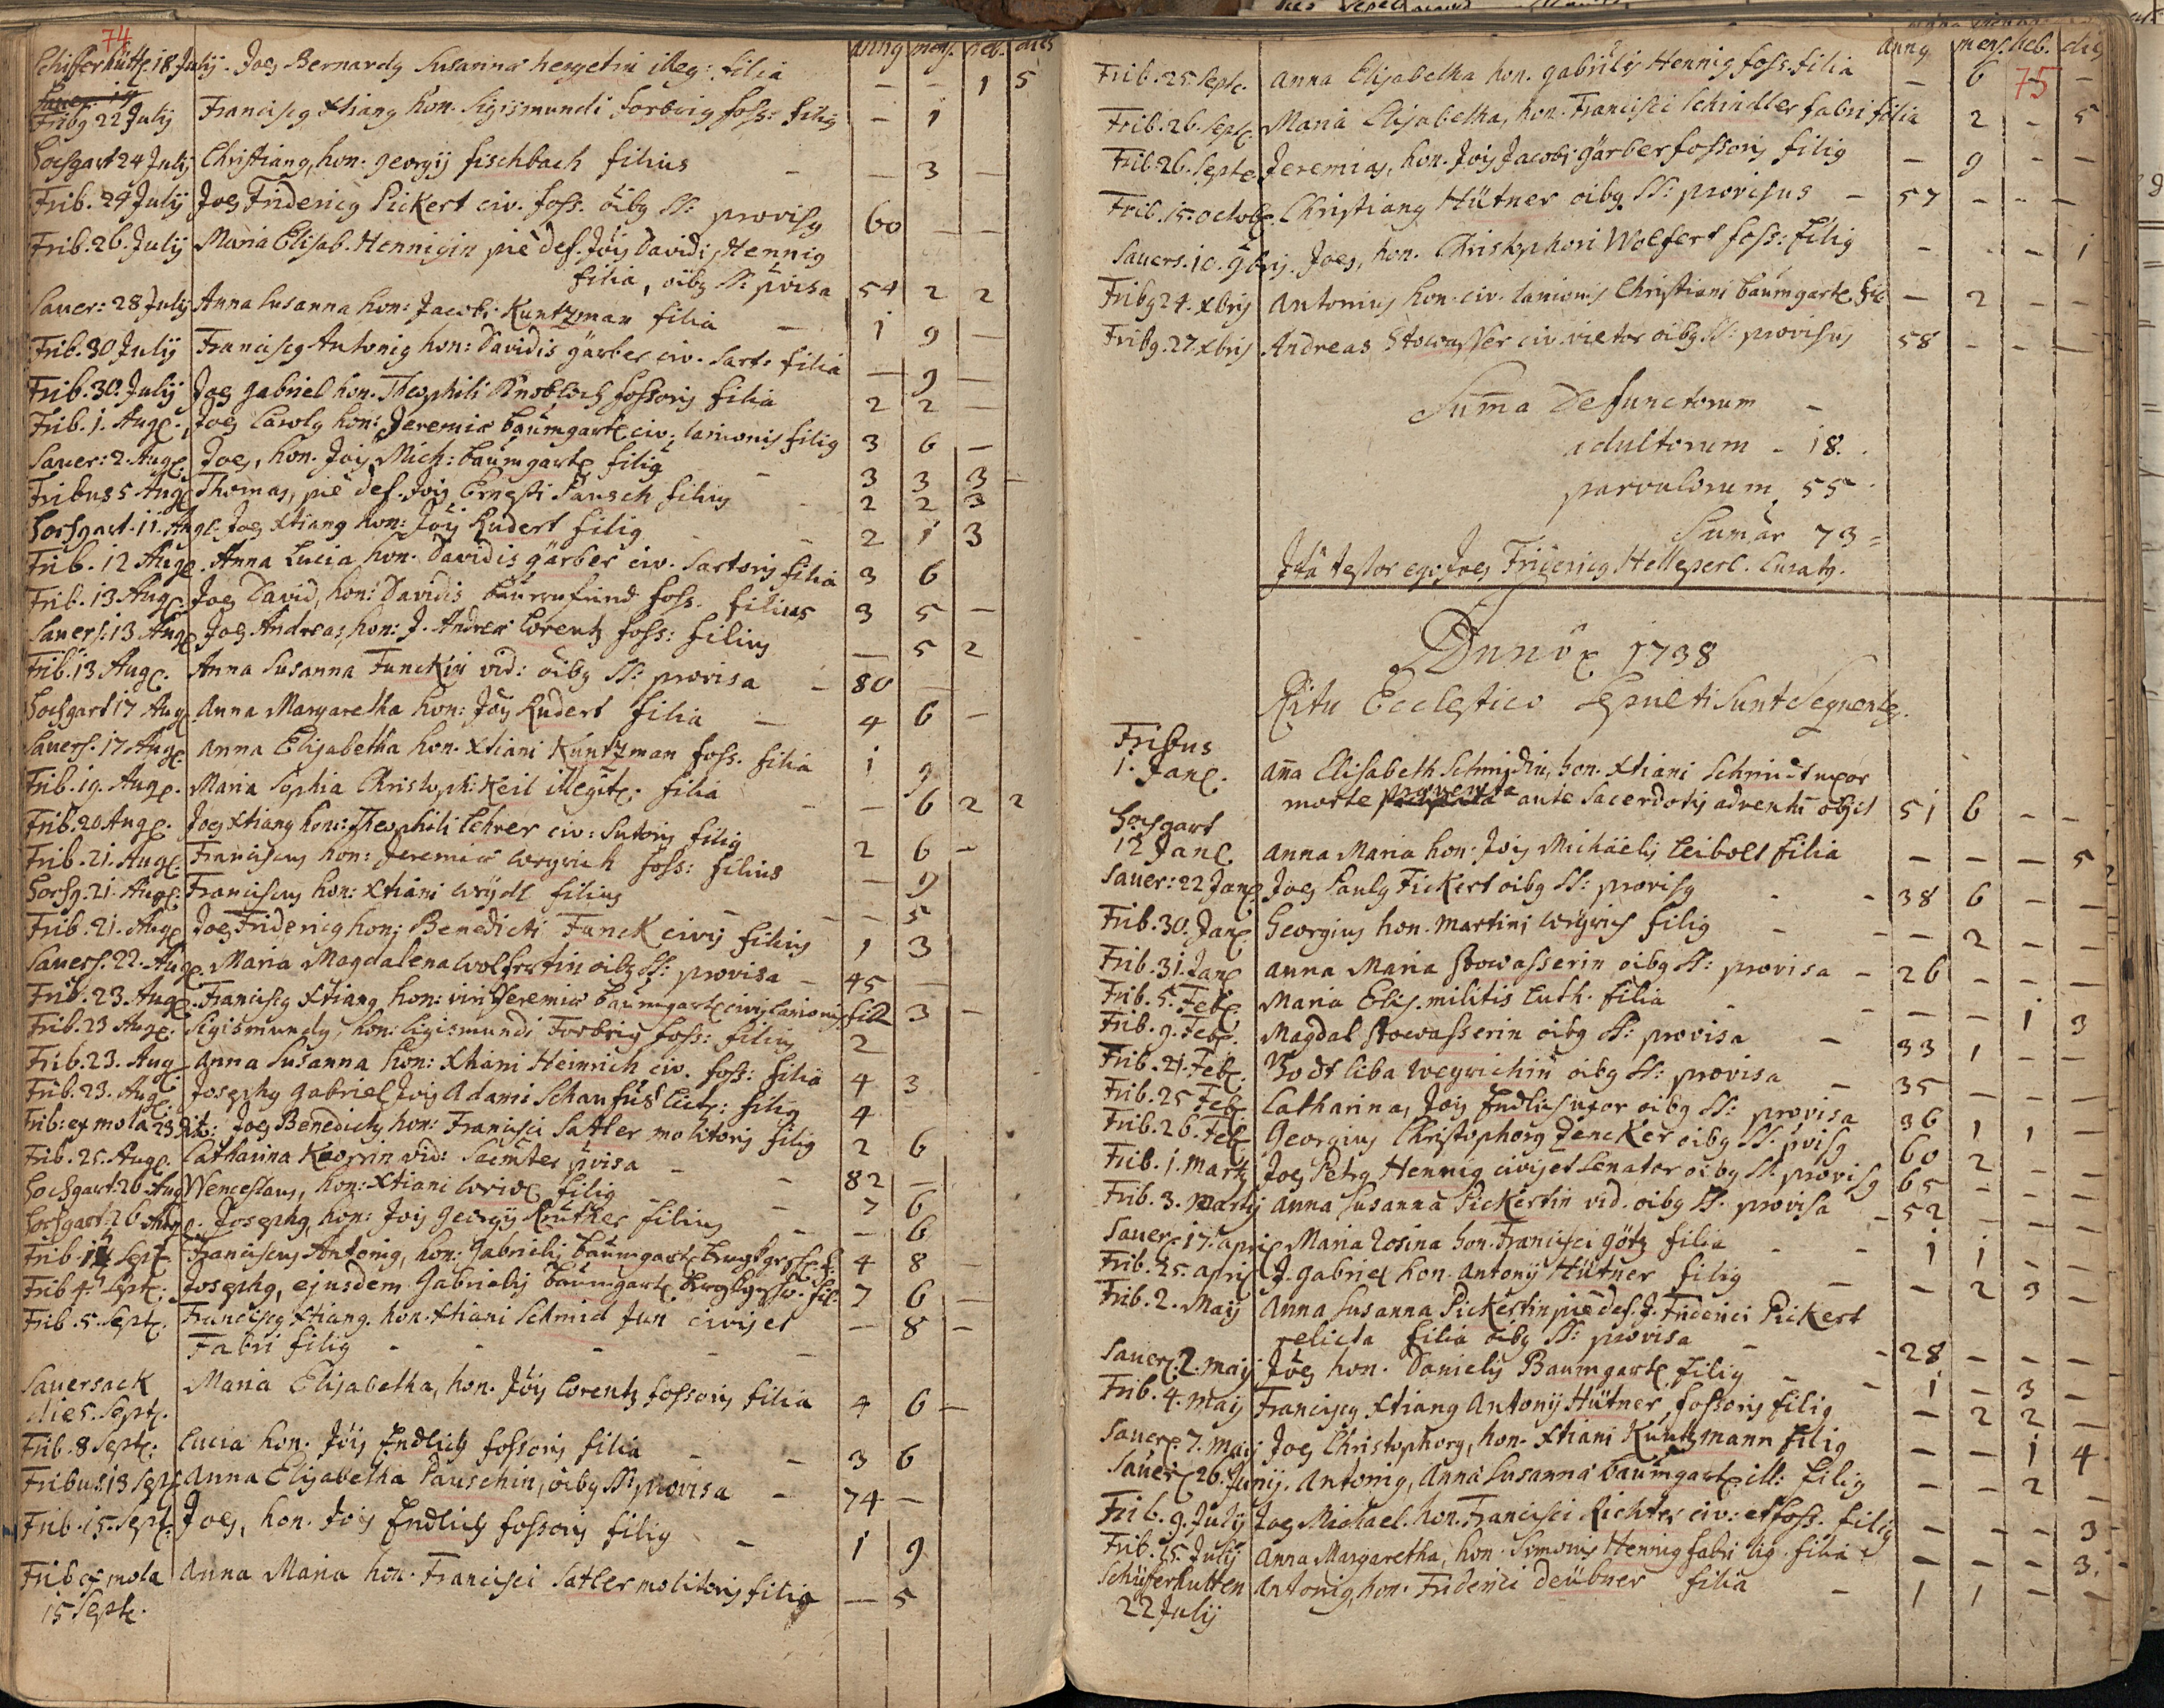 74
anng mens. heb. dies
Schifferhütt. 18 Julij. Joes Bernardg Susanna hergetin illeg: filia — — 1 5
Fribg 22 Julij Franciscg Xtiang hon. Sigismundi Forbrig foss: filig — 1
Hochgart 24 Julij Christiang, hon. georgij fischbach filius — — 3 —
Frib. 24 Julij Joes Fridericg Pickert civ. foss. oibg SS: provisg 60 — —
Frib. 26. Julij Maria Elisab. Hennigin pie def. Jois Davidis Hennig
filia, oibg SS: pvisa 54 2 2
Sauer: 28 Julij Anna Susanna hon: Jacobi Kuntzman filia — 1 9 —
Frib. 30 Julij Franciscg Antonig hon: Davidis gärber civ. Sart: filia — 9 —
Frib. 30. Julij Joes gabriel hon. Theophili Knobloch fossoris filia 2 2 —
Frib. 1. Aug. Joes Carolg hon: Jeremiæ baumgart civ. lanionis filig 3 6 —
Sauer: 2. Aug. Joes, hon. Jois Mich: baumgart filig 3 3 3 —
Fribus 5 Aug Thomas, pie def. Jois Ernesti Pausch filius 2 2 3
Hochgart. 11. Aug. Joes Xtiang hon: Jois Rudert filig 2 1 3
Frib. 12 Aug. Anna Lucia hon. Davidis gärber civ. Sartoris filia 3 6
Frib. 13 Aug. Joes David, hon: Davidis baurnfeind foss. filius 3 5 —
Sauers. 13 Aug Joes Andreas, hon: J. Andreæ Lorentz foss: filius — 5 2
Frib. 13 Aug. Anna Susanna Funckin vid: oibg SS: provisa — 80 —
Hochgart 17 Aug Anna Margaretha hon: Jois Rudert filia — 4 6 —
Sauers. 17 Aug. Anna Elisabetha hon. Xtiani Kuntzman foss. filia 1 9
Frib. 19. Aug. Maria Sophia Christoph: Keil illegit: filia — 6 2 2
Frib. 20 Aug. Joes Xtiang hon: Theophili Lehrer civ: Sutoris filig 2 6 —
Frib. 21. Aug. Franciscus hon: Jeremiæ Weyrich foss: filius — 9
Hochg. 21. Aug. Franciscus hon: Xtiani filius — — 5
Frib. 21. Aug Joes Fridericg hon: Benedicti Funck civis filius 1 3
Sauers. 22. Aug. Maria Magdalena Wolfertin oibg SS: provisa — 45 —
Frib. 23. Aug. Franciscg Xtiang hon: viri Jeremiæ baumgart civis lanionis fil 2 3 —
Frib. 23 Aug. Sigismundg, hon: Sigismundi Forbrig foss: filius 2
Frib. 23. Aug Anna Susanna hon: Xtiani Heinrich civ. foss: filia 4 3
Frib. 23. Aug. Josephg gabriel Jois Adami Schanfus filig 4
Frib: ex mola 23 Joes Benedictg hon: Francisci Satler molitoris filig 2 6
Frib. 25. Aug. Catharina vid: pvisa — 82 —
Hochgart: 26. Aug Wenceslaus, hon: Xtiani filig — 7 6
Hochgart. 26 Aug. Josephg, hon: Jois georgij filius — 6
Frib. Sept. Franciscus Antonig, hon: Gabrielis baumgart 4 8 —
Frib 4. Sept: Josephg, ejusdem Gabrielis baumgart fil: 7 6 —
Frib. 5. Sept. Franciscg Xtiang. hon. Xtiani Schmid Jun civis et — 8 —
Fabri filig - - - - -
Sauersack Maria Elisabetha, hon. Jois Lorentz fossoris filia 4 6 —
die 5. Sept.
Frib. 8 Sept: Lucia hon. Jois Endlich fossoris filia — — 3 6
Fribus 13 Sept Anna Elisabetha Pauschin, oibg SS: provisa — 74 —
Frib. 15. Sept. Joes, hon. Jois Endlich fossoris filig — 1 9
Frib ex mola Anna Maria hon. Francisci Satler molitoris filig — 5
15 Sept.
75
anng mens. heb. dies
Frib. 25. Sept. Anna Elisabetha hon. gabrielis Hennig foss. filia — 6 — —
Frib. 26. Sept. Maria Elisabetha, hon. Francisci Schindler fabri filia 2 — 5
Frib. 26. Septe Jeremias, hon. Jois Jacobi gärber fossoris filig — 9 — —
Frib. 15. octob. Christiang Hütner oibg SS: provisus — 57 — — —
Sauers. 10. 9bris. Joes, hon. Christophori Wolfert foss: filig — — — 1
Fribg 24. Xbris Antonius hon. civ. lanionis Christiani baumgart fil — 2 — —
Fribg. 27. Xbris Andreas Stowasser civ. vietor oibg. SS: provisus 58 — — —
Suma Defunctorum —
adultorum — 18.
parvulorum. 55.
Sumar 73 =
Ita testor ego Joes Fridericg Helleperl. Curatg.
Anno 1738
Ritu Ecclestico Sepulti Sunt Sequentes.
Fribus
1. Jan. Aña Elisabeth Schmidin, hon. Xtiani Schmidt uxor
morte præventa ante Sacerdotis adventu obijt 51 6 — —
Hochgart
12 Jan. Anna Maria hon: Jois Michäelis Leibolt filia — — — 5
Sauer: 22 Jan Joes Paulg Fickert oibg SS: provisg — — 38 6 — —
Frib. 30. Jan. Georgius hon. Martini Weyrich filig — — — 2 — —
Frib. 31. Jan Anna Maria Stowasserin oibg SS: provisa — 26 — — —
Frib. 5. Feb. Maria Elis. militis Luth. filia — — — 1 3
Frib. 9. Feb. Magdal Stowasserin oibg SS: provisa — 33 1 — —
Frib. 21. Feb. liba Weyrichin oibg SS: provisa — 35 — — —
Frib. 25 Feb. Catharina, Jois Endlich uxor oibg SS: provisa 36 1 1 —
Frib. 26. Feb Georgius Christophorg Dencker oibg SS. pvisg 60 2 — —
Frib. 1. Martij Joes Petrg Hennig civis et Senator oibg SS. provisg 65 — — —
Frib. 3. Martij Anna Susanna Pickertin vid. oibg SS. provisa — 52 — — —
Sauer. 17. april Maria Rosina hon. Francisci götz filia — — 1 1 — —
Frib. 25. april J. Gabriel hon. Antonij Hütner filig — — 2 3 —
Frib. 2. Maij Anna Susanna Pickertin pie def. J. Friderici Pickert
relicta filia oibg SS: provisa — — 28 — — —
Sauer. 2. maij Joes hon. Danielis Baumgart filig — — 1 — 3 —
Frib. 4. maij Franciscg Xtiang Antonij Hütner, fossoris filig — 2 2 —
Sauer. 7. maij Joes Christophorg, hon. Xtiani Kuntzmann filig — — 1 4.
Sauer. 26. Junij. Antonig, Anna Susanna baumgart ill: filig — — 2 —
Frib. 9. Julij Joes Michael. hon. Francisci Richter civ: et foss. filig — — — 3 —
Frib. 15. Julij Anna Margaretha, hon. Simonis Hennig fabri lig. filia — — — 3. —
Schüfferhutten Antonig, hon. Friderici Deübner filia — 1 1 — —
22 Julij